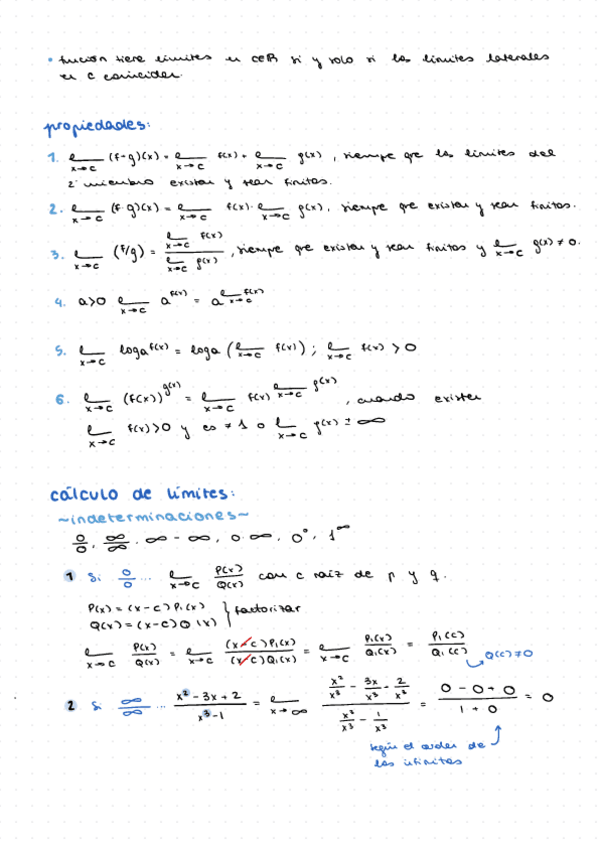 • función tiene límites en c∈R si y solo si los límites laterales
en c coinciden.
propiedades:
1. lim x→c (f+g)(x) = lim x→c f(x) + lim x→c g(x), siempre que los límites del
2º miembro existan y sean finitos.
2. lim x→c (f·g)(x) = lim x→c f(x) · lim x→c g(x), siempre que existan y sean finitos.
3. lim x→c (f/g) = lim x→c f(x) / lim x→c g(x), siempre que existan y sean finitos y lim x→c g(x) ≠ 0.
4. a>0 lim x→c a^f(x) = a^lim x→c f(x)
5. lim x→c loga f(x) = loga (lim x→c f(x)) ; lim x→c f(x) > 0
6. lim x→c (f(x))^g(x) = lim x→c f(x)^lim x→c g(x), cuando existen
lim x→c f(x)>0 y es ≠ 1 o lim x→c g(x) ± ∞
cálculo de límites:
~indeterminaciones~
0/0, ∞/∞, ∞ - ∞, 0·∞, 0°, 1^∞
1 Si 0/0 ... lim x→c P(x)/Q(x) con c raíz de p y q.
P(x) = (x-c) P₁(x)
Q(x) = (x-c) Q (x) } factorizar
lim x→c P(x)/Q(x) = lim x→c (x-c)P₁(x)/(x-c)Q₁(x) = lim x→c P₁(x)/Q₁(x) = P₁(c)/Q₁(c)
Q(c)≠0
2 Si ∞/∞ ... x²-3x+2/x³-1 = lim x→∞ (x²/x³ - 3x/x³ - 2/x²)/(x³/x³ - 1/x³) = 0-0+0/1+0 = 0
según el orden de
los infinitos